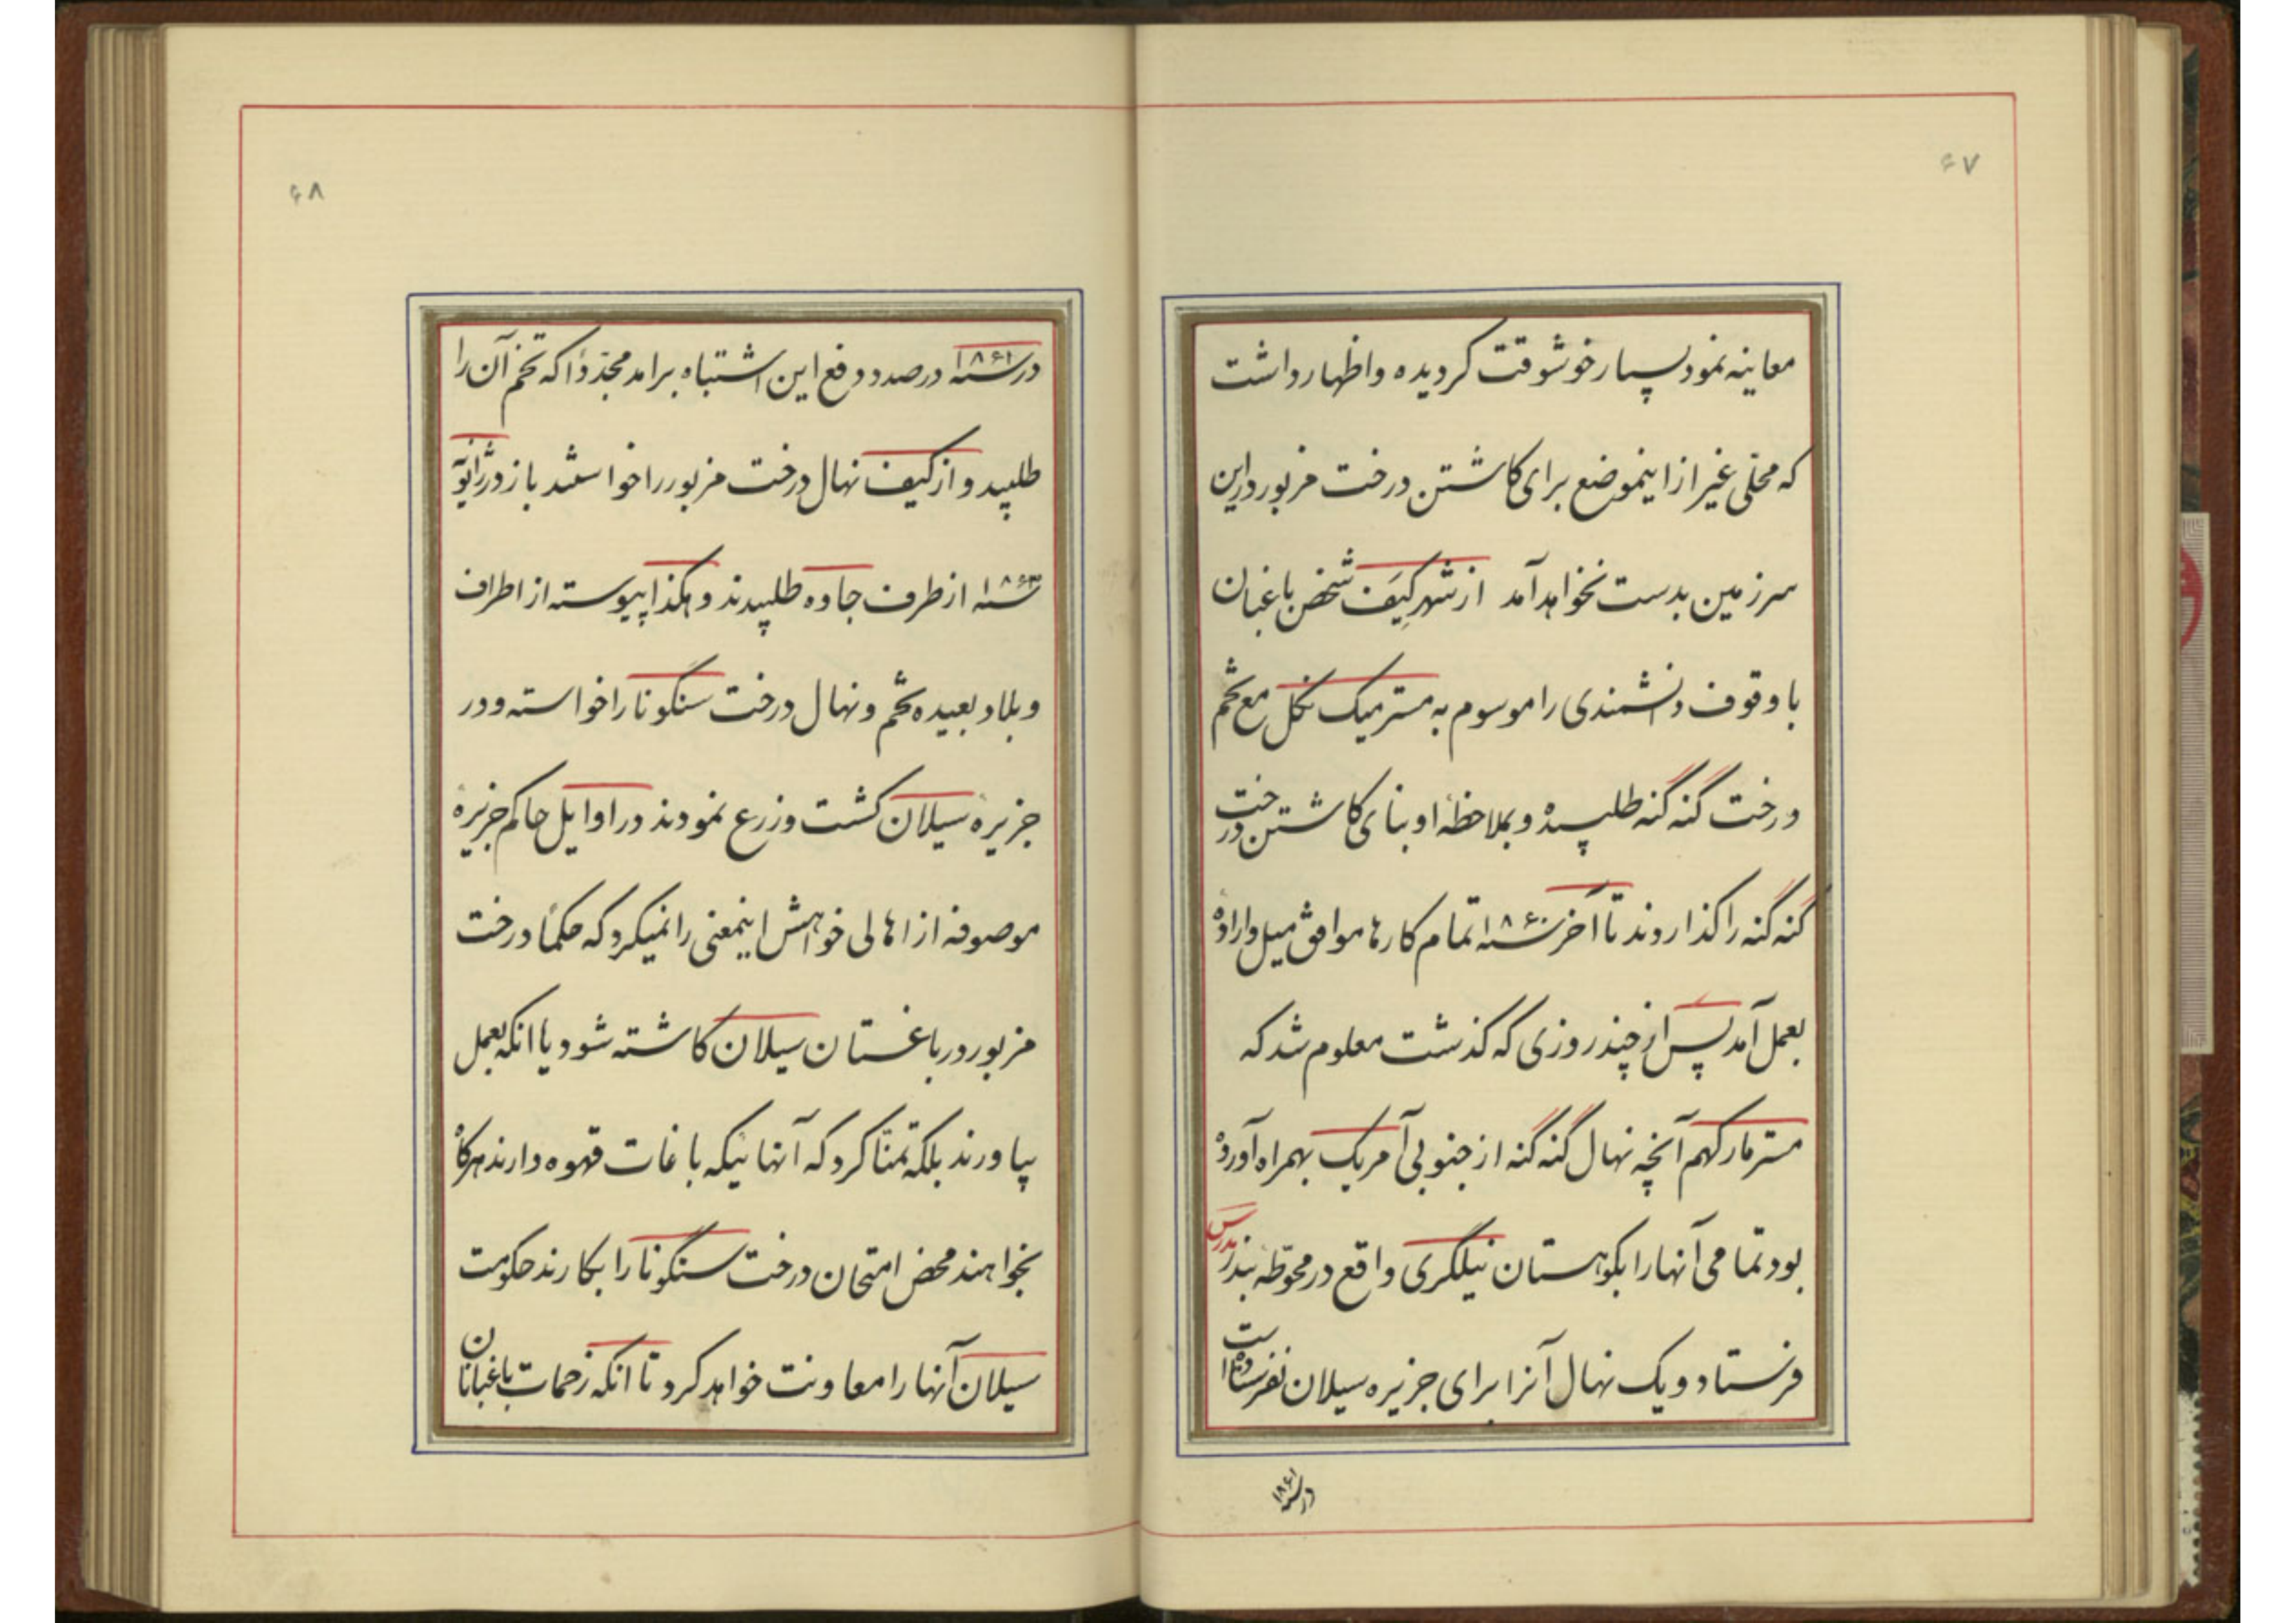 ۶۷
معاینه نمود بسیار خوشوقت گردیده و اظهار داشت
که محلی غیر از اینموضع برای کاشتن درخت مزبور در این
سرزمین بدست نخواهد آمد از شهر کیَف شخص باغبان
با وقوف دانشمندی را موسوم به مستر میک نکل مع تخم
درخت گنه گنه طلبیده و بملاحظهٔ او بنای کاشتن درخت
گنه گنه را گذاردند تا آخر سنه ۱۸۶۰ تمام کارها موافق میل و اراده
بعمل آمد پس از چند روزی که گذشت معلوم شد که
مستر مارکهم آنچه نهال گنه گنه از جنوبی آمریک بهمراه آورده
بود تمامی آنها را بکوهستان نیلگری واقع در محوطهٔ بندر مدرس
فرستاد و یک نهال آنرا برای جزیره سیلان نفرستاده است
در سنه ۱۸۶۱
۶۸
در سنه ۱۸۶۱ در صدد دفع این اشتباه برامد مجدّداً که تخم آن را
طلبید و از کیف نهال درخت مزبور را خواستند باز در ژانویه
سنه ۱۸۶۳ از طرف جاوه طلبیدند و هکذا پیوسته از اطراف
و بلاد بعیده تخم و نهال درخت سنگونا را خواسته و در
جزیرهٔ سیلان کشت و زرع نمودند در اوایل حاکم جزیرهٔ
موصوفه از اهالی خواهش اینمعنی را نمیکرد که حکماً درخت
مزبور در باغستان سیلان کاشته شود یا انکه بعمل
بیاورند بلکه تمنّا کرد که آنهائیکه باغات قهوه دارند هرگاه
بخواهند محض امتحان درخت سنگونا را بکارند حکومت
سیلان آنها را معاونت خواهد کرد تا انکه زحمات باغبانان